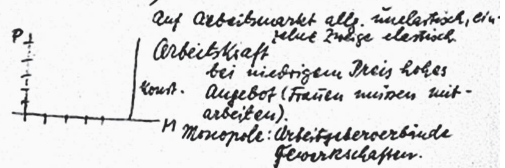 Auf Arbeitsmarkt allg. unelastisch, ein-
zelne Zweige elastisch
P
Arbeitskraft
bei niedrigem Preis hohes
konst. Angebot (Frauen müssen mit-
arbeiten).
M
Monopole: Arbeitgeberverbände
Gewerkschaften.